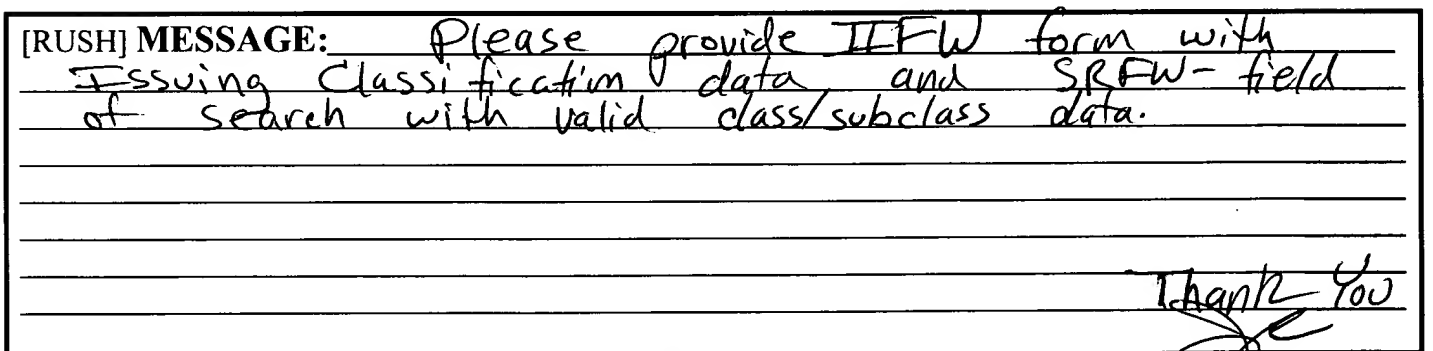 [RUSH] MESSAGE: Please provide IIFW form with
Issuing Classification data and SRFW- field
of search with valid class/subclass data.
Thank You